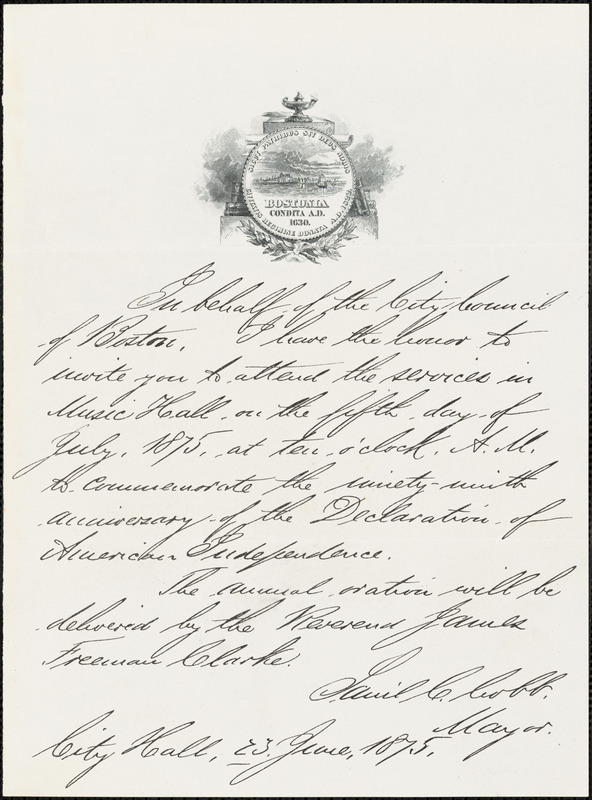 SICUT PATRIBUS SIT DEUS NOBIS
BOSTONIA
CONDITA A.D.
1630.
CIVITATIS REGIMINE DONATA A.D. 1822.
In behalf of the City Council
of Boston, I have the honor to
invite you to attend the services in
Music Hall on the fifth day of
July, 1875, at ten o'clock, A.M.
to commemorate the ninety-ninth
anniversary of the Declaration of
American Independence.
The annual oration will be
delivered by the Reverend James
Freeman Clarke.
Saml C. Cobb.
Mayor.
City Hall, 23 June, 1875.